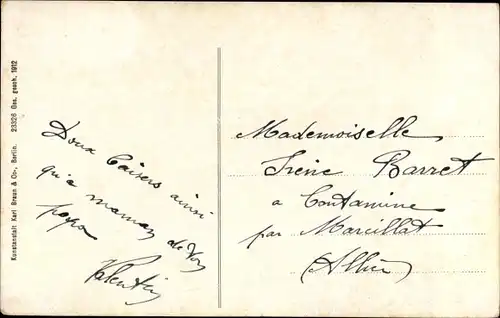 Kunstanstalt Karl Braun & Cie, Berlin. 23326 Ges. gesch. 1912
Doux baisers ainsi
qu'a maman de ton
papa
Valentin
Mademoiselle
Irène Barret
a Contamine
par Marcillat
(Allier)